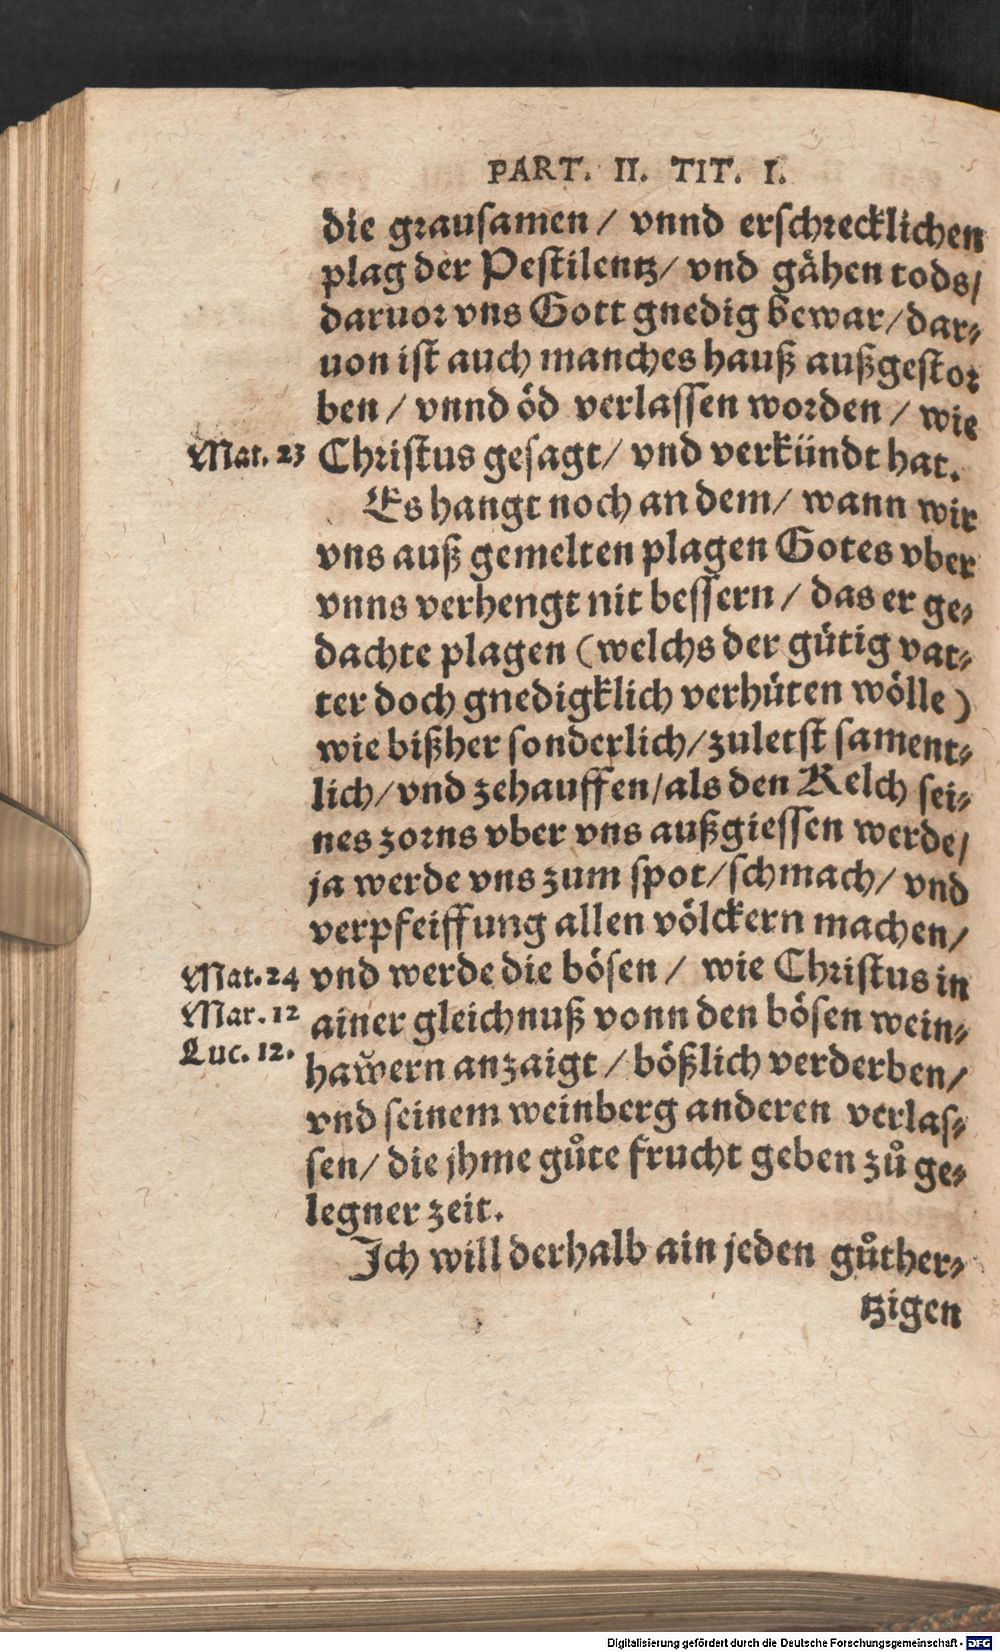 PART. II. TIT. I.
die grausamen / vnnd erschrecklichen
plag der Pestilentz/ vnd gähen tods/
daruor vns Gott gnedig bewar/dar⸗
uon ist auch manches hauß außgestor
ben / vnnd öd verlassen worden / wie
Mat. 23 Christus gesagt/ vnd verkündt hat.
Es hangt noch an dem/ wann wir
vns auß gemelten plagen Gotes vber
vnns verhengt nit bessern / das er ge⸗
dachte plagen (welchs der gütig vat⸗
ter doch gnedigklich verhüten wölle)
wie bißher sonderlich/zuletst sament⸗
lich/vnd zehauffen/als den Kelch sei⸗
nes zorns vber vns außgiessen werde/
ja werde vns zum spot/schmach/ vnd
verpfeiffung allen völckern machen/
Mat. 24 vnd werde die bösen / wie Christus in
Mar. 12 ainer gleichnuß vonn den bösen wein⸗
Luc. 12. haẅern anzaigt / bößlich verderben/
vnd seinem weinberg anderen verlas⸗
sen/ die jhme gůte frucht geben zů ge⸗
legner zeit.
Ich will derhalb ain jeden gůther⸗
tzigen
Digitalisierung gefördert durch die Deutsche Forschungsgemeinschaft - DFG